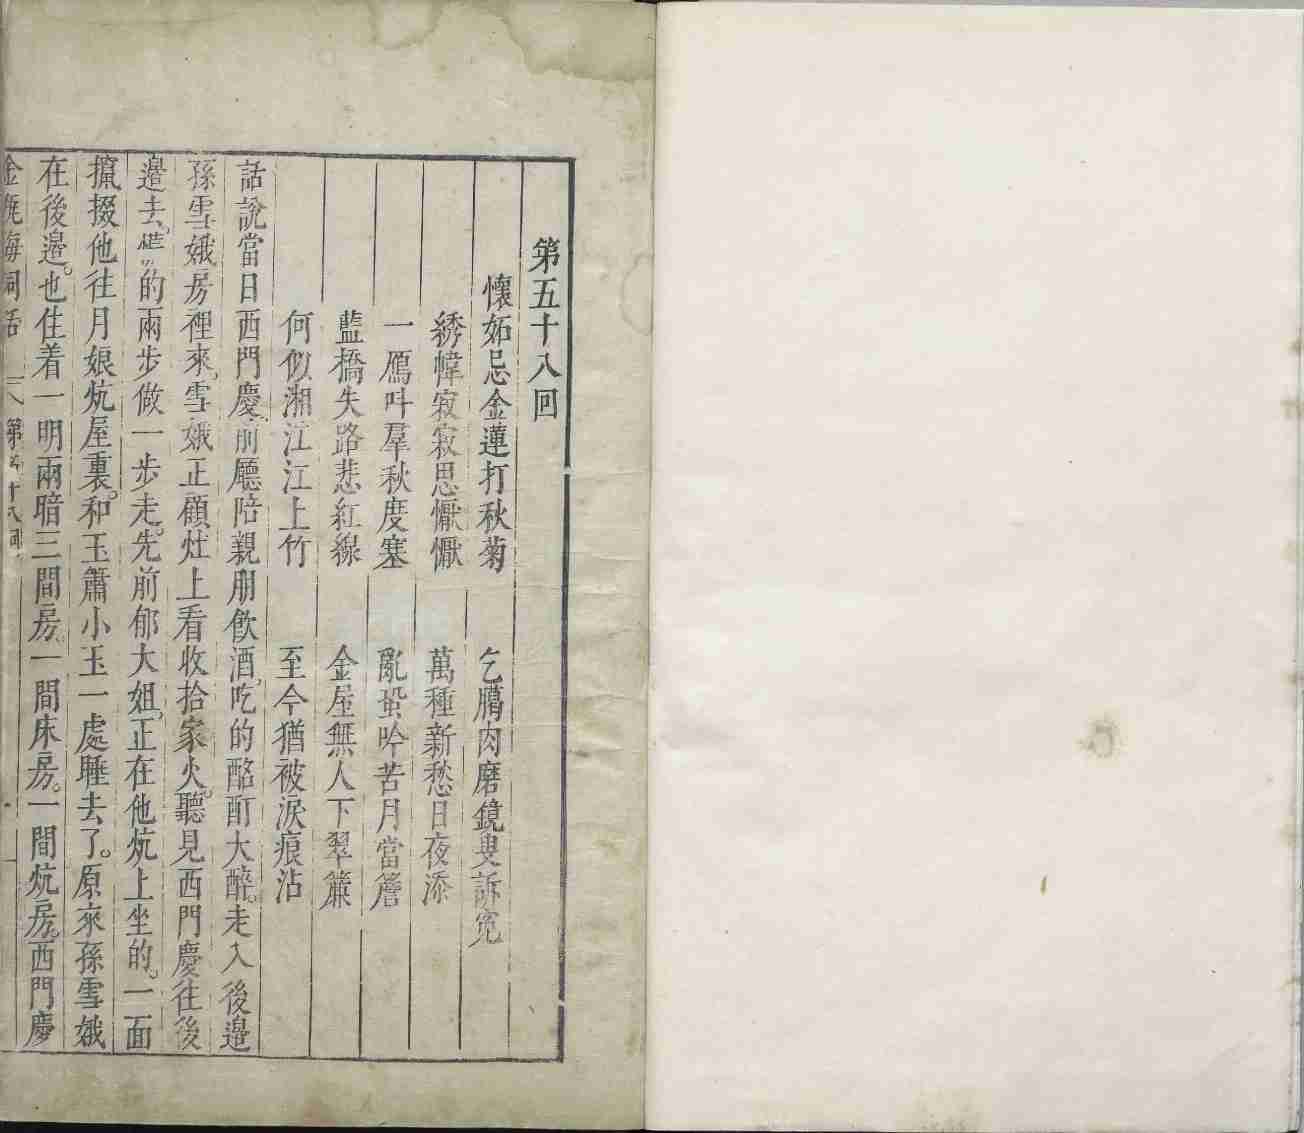 第五十八回
懷妬忌金蓮打秋菊 乞臈肉磨鏡叟訴寃
綉幃寂寂思懨懨 萬種新愁日夜添
一鴈呌羣秋度塞 亂蛩吟苦月當簷
藍橋失路悲紅線 金屋無人下翠簾
何似湘江江上竹 至今猶被淚痕沾
話說當日西門慶前廳陪親朋飲酒吃的酩酊大醉。走入後邊
孫雪娥房裡來。雪娥正顧灶上看收拾家火。聽見西門慶往後
邊去。慌的兩步做一步走。先前郁大姐。正在他炕上坐的。一面
攛掇他往月娘炕屋裏。和玉簫小玉一處睡去了。原來孫雪娥
在後邊。也住着一明兩暗三間房。一間床房。一間炕房。西門慶
金瓶梅詞話 第五十八回